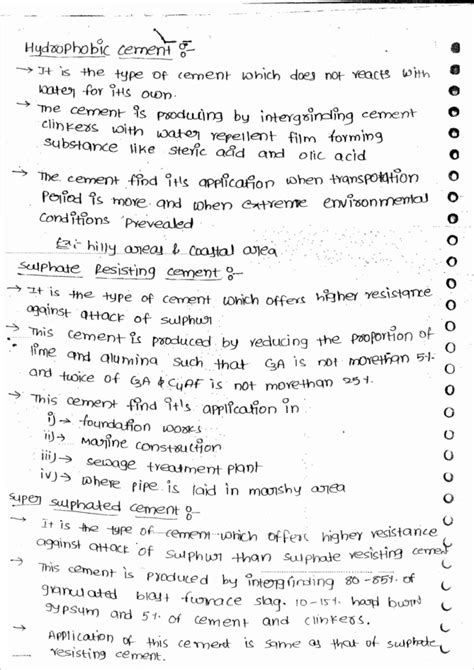 Hydrophobic cement :-
→ It is the type of cement which does not reacts with
water for it's own.
→ The cement is producing by intergrinding cement
clinkers with water repellent film forming
substance like steric acid and olic acid
→ The cement find it's application when transpotation
Period is more and when extreme environmental
conditions Prevealed
Ex:- hilly areas & coastal area
Sulphate Resisting cement :-
→ It is the type of cement which offers higher resistance
against attack of sulphur
→ This cement is produced by reducing the proportion of
lime and alumina such that C₃A is not morethan 5%
and twice of C₃A & C₄AF is not morethan 25%.
→ This cement find it's application in
i) → foundation works
ii) → Marine construction
iii) → sewage treatment plant
iv) → where pipe is laid in marshy area
Super sulphated cement :-
→ It is the type of cement which offers higher resistance
against attack of sulphur than sulphate resisting cement
→ This cement is produced by intergrinding 80-85% of
granulated blast furnace slag. 10-15% hard burnt
gypsum and 5% of cement and clinkers.
→ Application of this cement is same as that of sulphate
resisting cement.